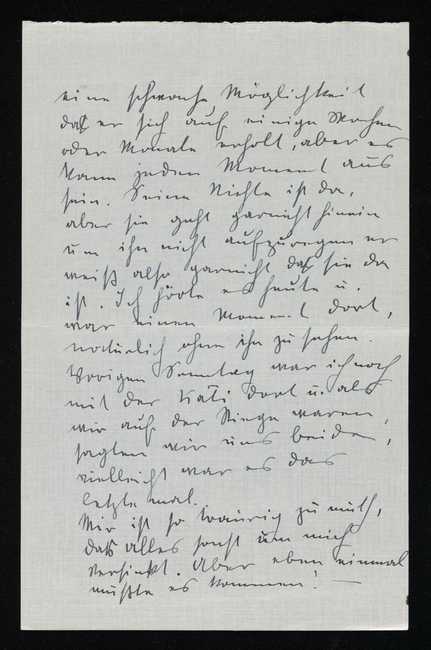 eine schwache Möglichkeit
daß er sich auf einige Wochen
oder Monate erholt, aber es
kann jeden Moment aus
sein. Seine Nichte ist da,
aber sie geht garnicht hinein
um ihn nicht aufzuregen er
weiß also garnicht daß sie da
ist. Ich hörte es heute u.
war einen Moment dort,
natürlich ohne ihn zu sehen.
Vorigen Sonntag war ich noch
mit der Kati dort u. als
wir auf der Stiege waren,
sagten wir uns beide,
vielleicht war es das
letzte mal.
Mir ist so traurig zu muth,
daß alles sonst um mich
versinkt. Aber eben einmal
mußte es kommen! —